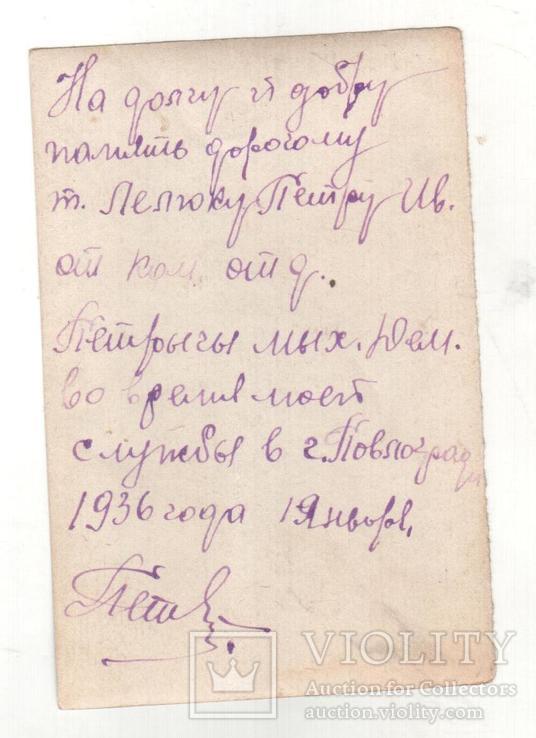 На долгу й добру
память дорогому
т. Лелюку Петру Ив.
от ком. отд.
Петрычы мых. Дем.
во время моей
службы в г. Повлограде
1936 года 1 Январ,
Пет
VIOLITY
Auction for Collectors
auction.violity.com